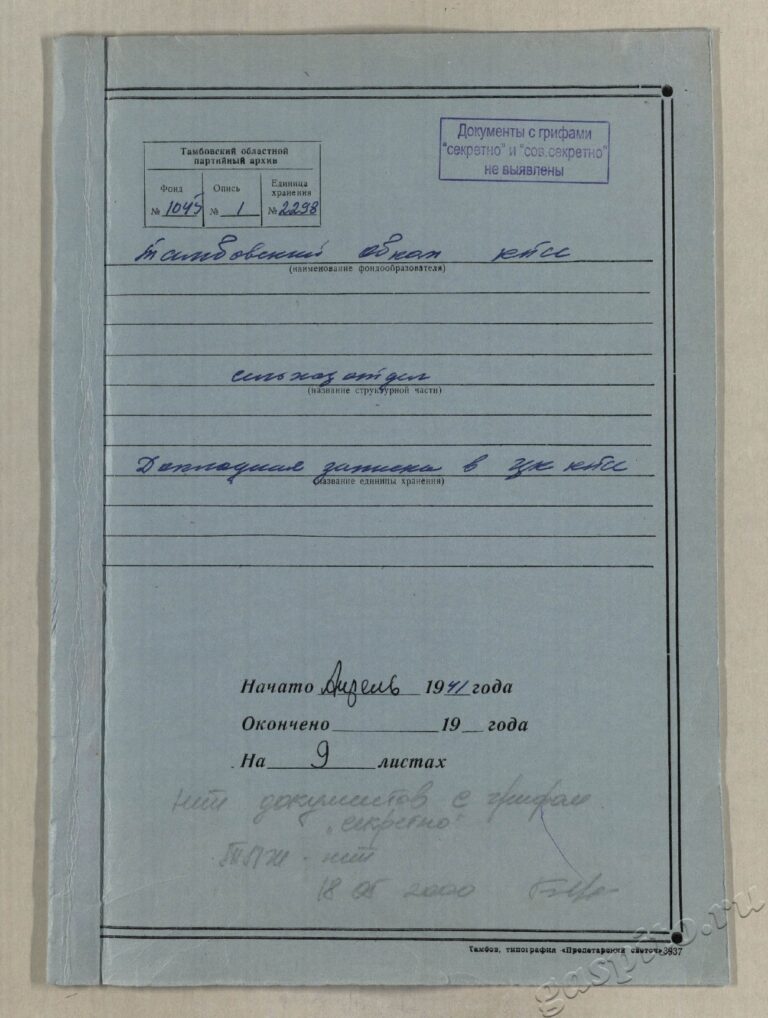 Тамбовский областной
партийный архив
Фонд
№ 1045
Опись
№ 1
Единица
хранения
№ 2298
Документы с грифами
"секретно" и "сов.секретно"
не выявлены
Тамбовский обком кпсс
(наименование фондообразователя)
сельхозотдел
(название структурной части)
Докладная записка в ЦК кпсс
(название единицы хранения)
Начато Апрель 1941 года
Окончено 19 года
На 9 листах
нет документов с грифом
"секретно"
нет
18 05 2000
Тамбов, типография «Пролетарский светоч» 3937
gaspito.ru